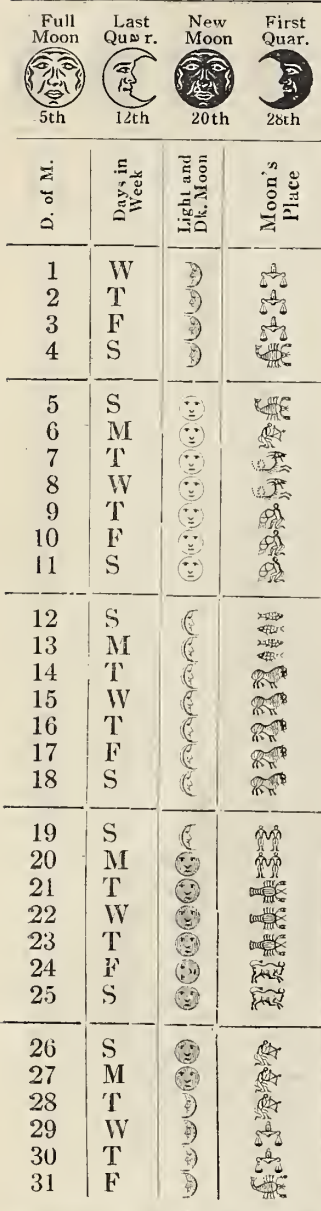 Full Last New First
Moon Quar. Moon Quar.
5th 12th 20th 28th
D. of M. Days in Week Light and Dk. Moon Moon's Place
1 W
2 T
3 F
4 S
5 S
6 M
7 T
8 W
9 T
10 F
11 S
12 S
13 M
14 T
15 W
16 T
17 F
18 S
19 S
20 M
21 T
22 W
23 T
24 F
25 S
26 S
27 M
28 T
29 W
30 T
31 F